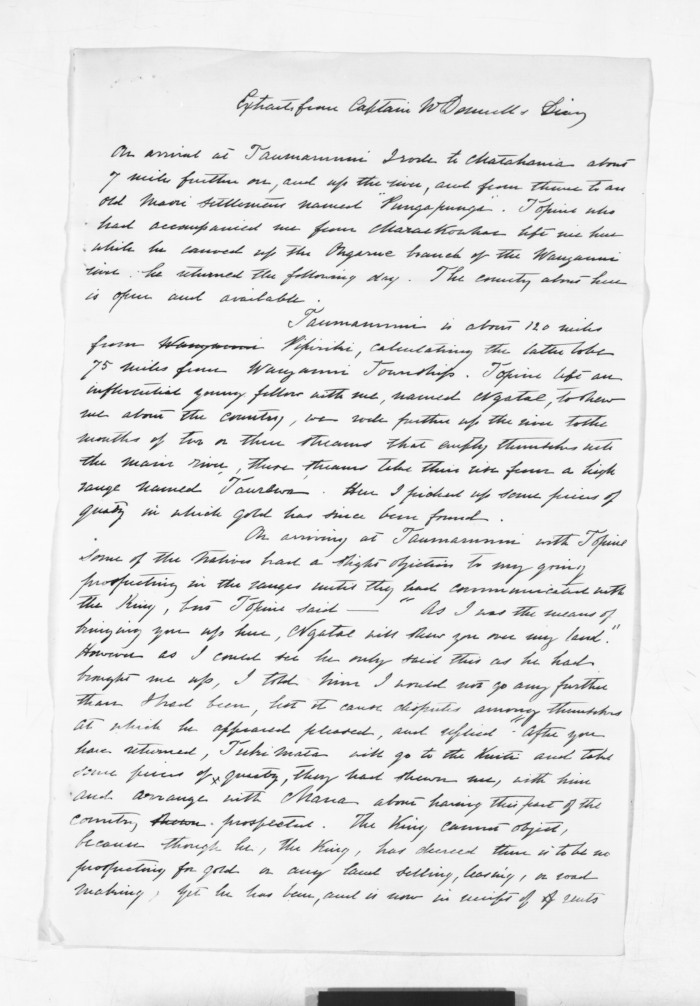 Extracts from Captain McDonnell's Diary
On arrival at Taumarunui I rode to Matahaeia about
7 miles further on, and up the river, and from thence to an
old Maori settlement named "Pungapunga". Topine who
had accompanied me from Maraekowhai left me here
while he canoed up the Ongarue branch of the Wanganui
river he returned the following day. The country about here
is open and available.
Taumarunui is about 120 miles
from Wanganui Pipiriki, calculating the latter to be
75 miles from Wanganui Township. Topine left an
influential young fellow with me, named Ngatai, to shew
me about the country, we rode further up the river to the
mouths of two or three streams that empty themselves into
the main river, these streams take their rise from a high
range named "Taurewa". Here I picked up some pieces of
quartz in which gold has since been found.
On arriving at Taumarunui with Topine
some of the Natives had a slight objection to my going
prospecting in the ranges until they had communicated with
the King, but Topine said — "As I was the means of
bringing you up here, Ngatai will shew you over my land."
However as I could see he only said this as he had
brought me up, I told him I would not go any further
than I had been, lest it cause disputes among themselves
at which he appeared pleased, and replied "After you
have returned, Tuhi Mata will go to the Kuiti and take
some pieces of quartz, they had shewn me, with him
and arrange with Mana about having this part of the
country shewn prospected. The King cannot object,
because though he, the King, has decreed there is to be no
prospecting for gold or any land selling, leasing, or road
making, yet he has been, and is now in receipt of rents